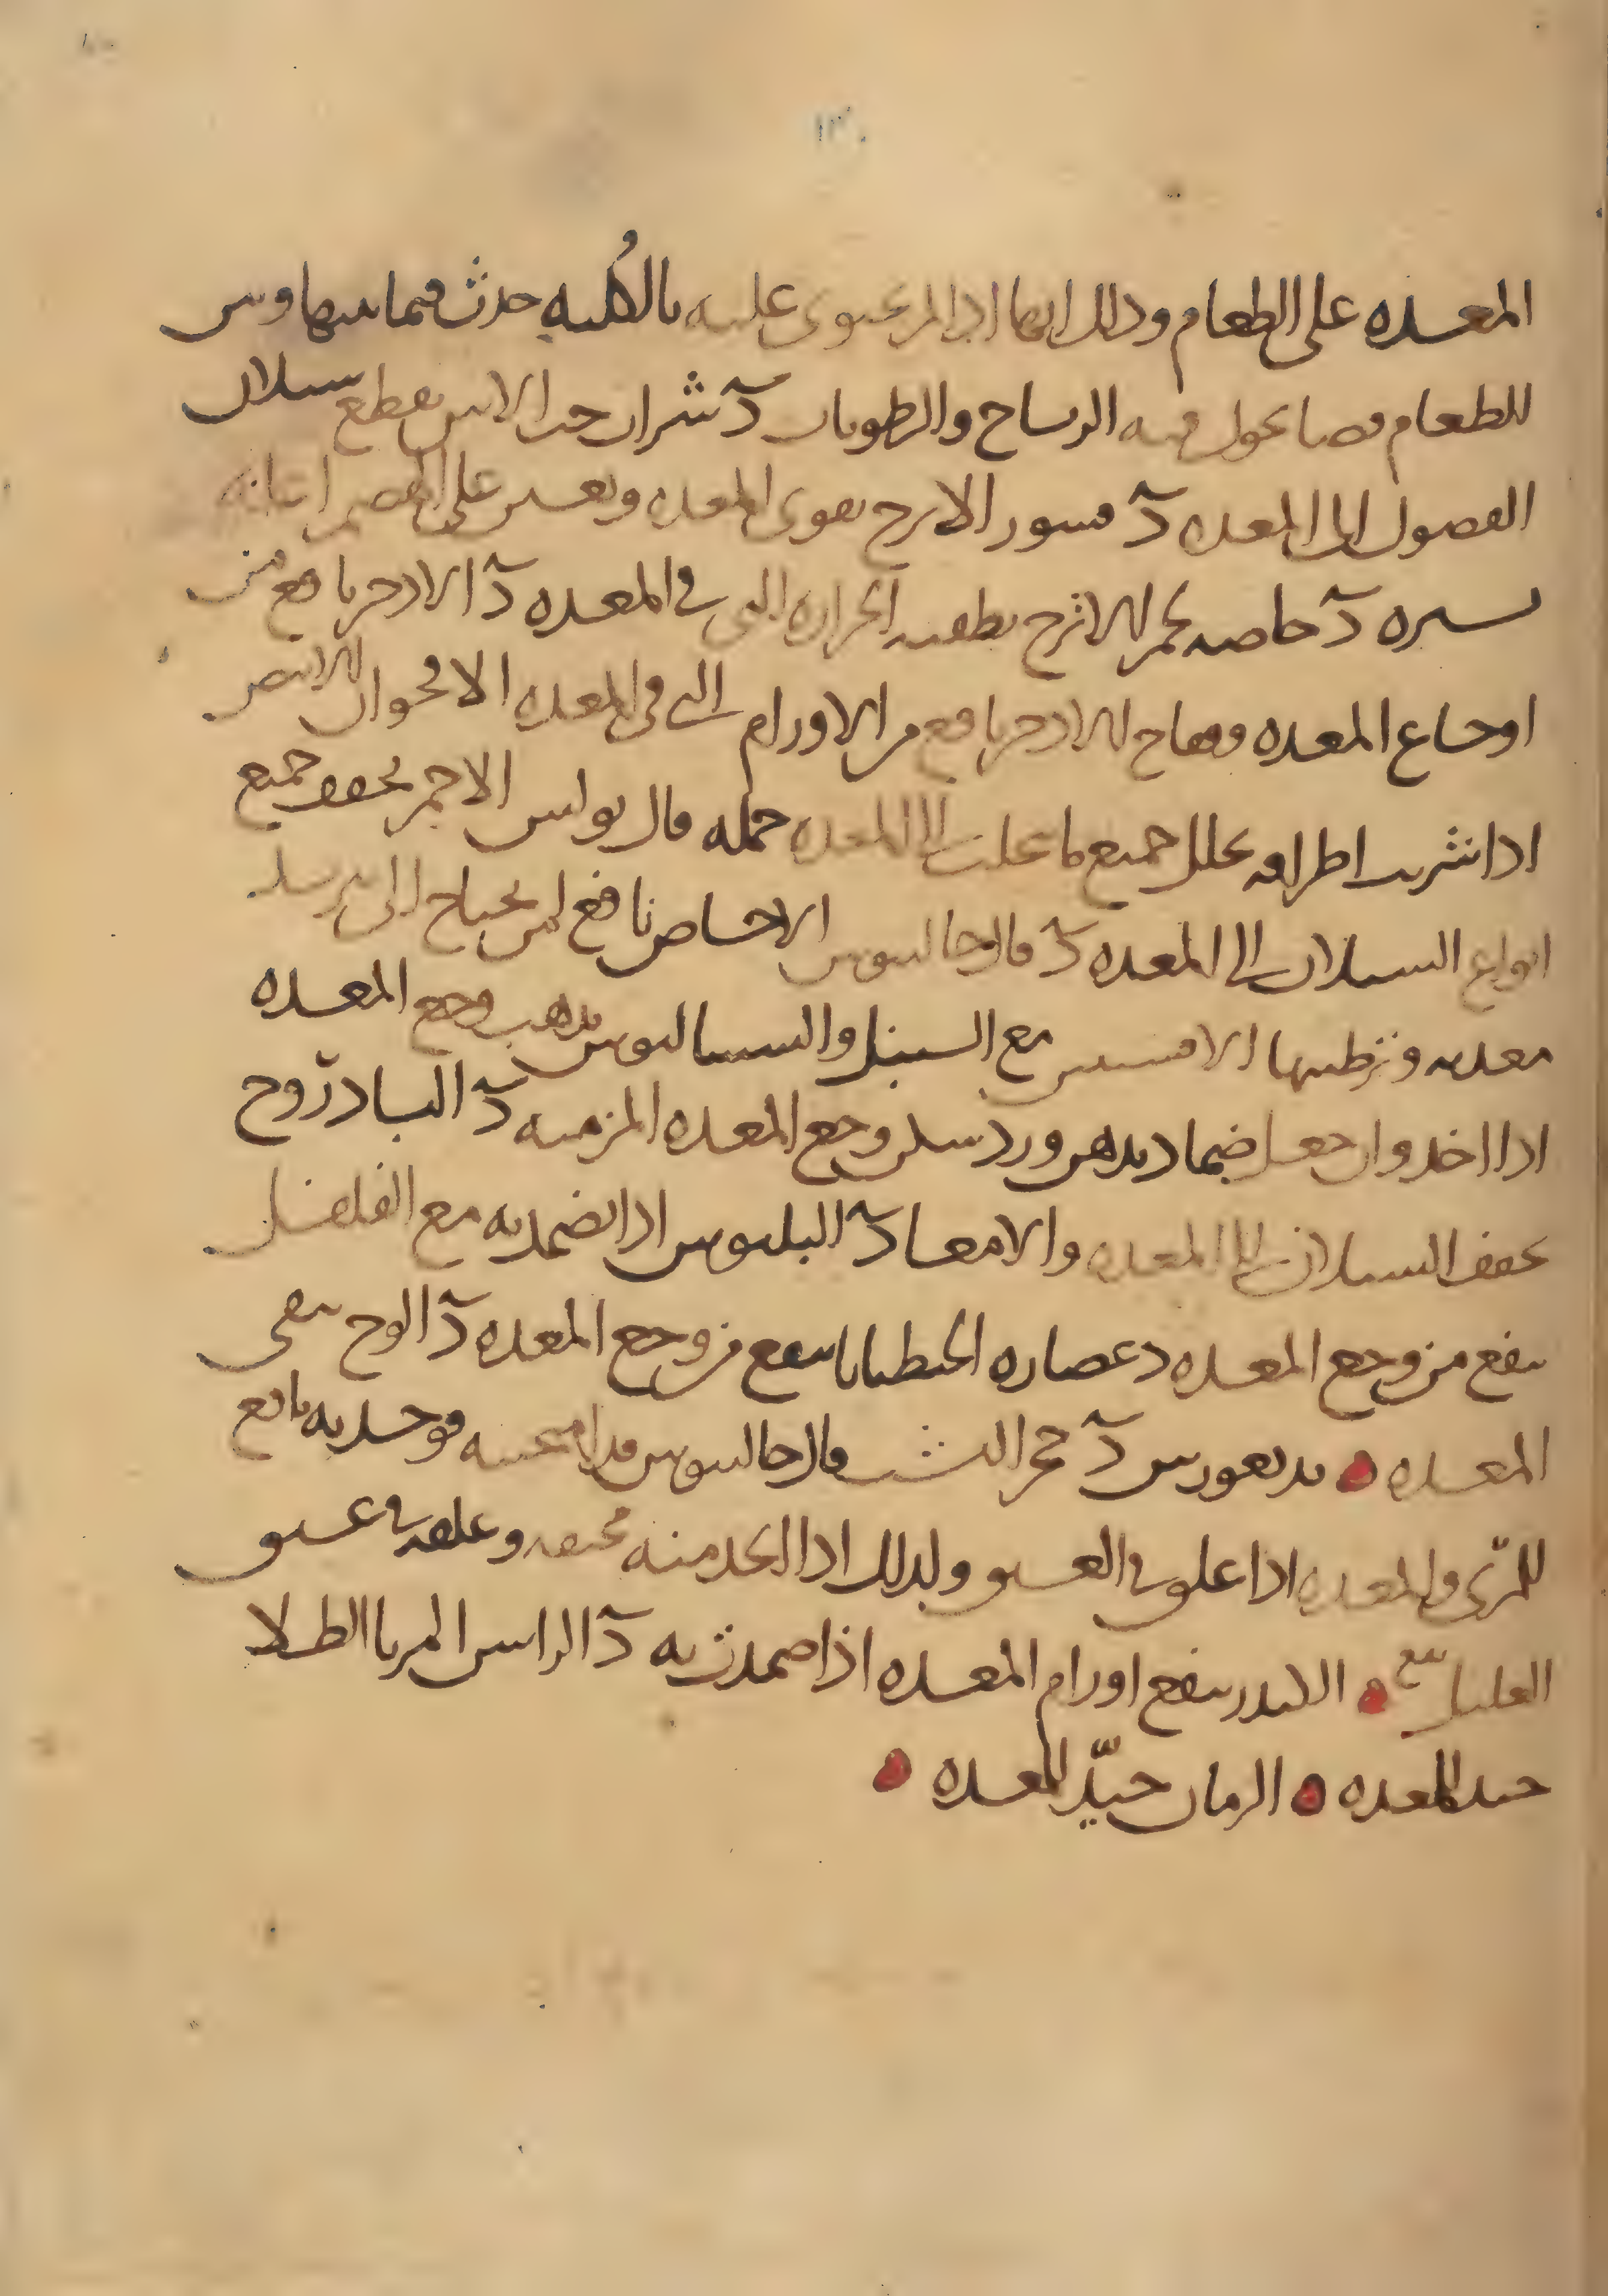 ١٣٠
المعده على الطعام وذلك انها اذا لم تحتوى عليه بالكليه حدث فيما بينها وبين
للطعام فضا تجول فيه الرياح والرطوبات د شراب حب الاس يقطع سيلان
الفضول الى المعده د قشور الاترج يقوى المعده ويعين على الهضم
يسيره د خاصه لحم الاترج تطفيه الحراره التى فى المعده د الاذخر نافع من
اوجاع المعده وفقاح الاذخر نافع من الاورام التى فى المعده الاقحوان الابيض
اذا شربت اطرافه تحلل جميع ما تحلب الى المعده جمله قال بولس الاحمر يجفف جميع
انواع السيلان الى المعده د قال جالينوس الاجاص نافع لمن يحتاج الى تبريد
معدته وترطيبها الافسنتين مع السنبل والسساليوس يذهب وجع المعده
اذا اخذ وان جعل ضمادا بدهن ورد سكن وجع المعده المزمنه د الباذروح
يجفف السيلان الى المعده والامعا د البلبوس اذا تضمد به مع الفلفل
ينفع من وجع المعده د عصاره الجنطيانا ينفع من وجع المعده د الوج ينقى
المعده بديغورس د حجر اليشب قال جالينوس قد امتحنته فوجدته نافع
للمرّى والمعده اذا علق فى العنق ولذلك اذا اتخذ منه مخنقه وعلقت فى عنق
العليل نفع الكندر ينفع اورام المعده اذا ضمدت به د الراسن المربا الطلا
جيد للمعده الرمان جيّد للمعده